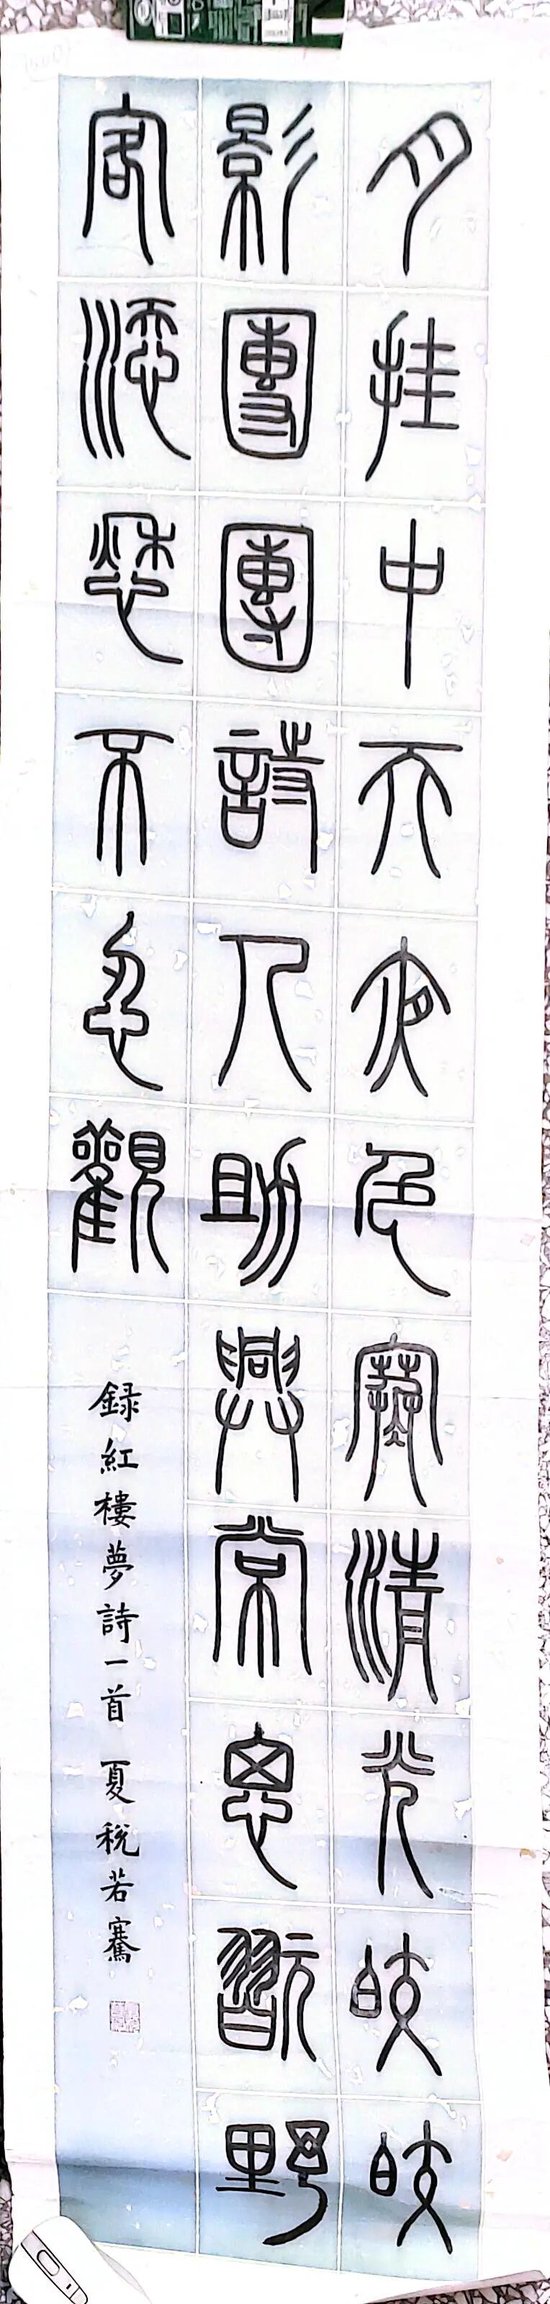 月挂中天夜色寒清光皎皎
影團團詩人助興常思翫野
客添愁不忍觀
録紅樓夢詩一首 夏税若騫